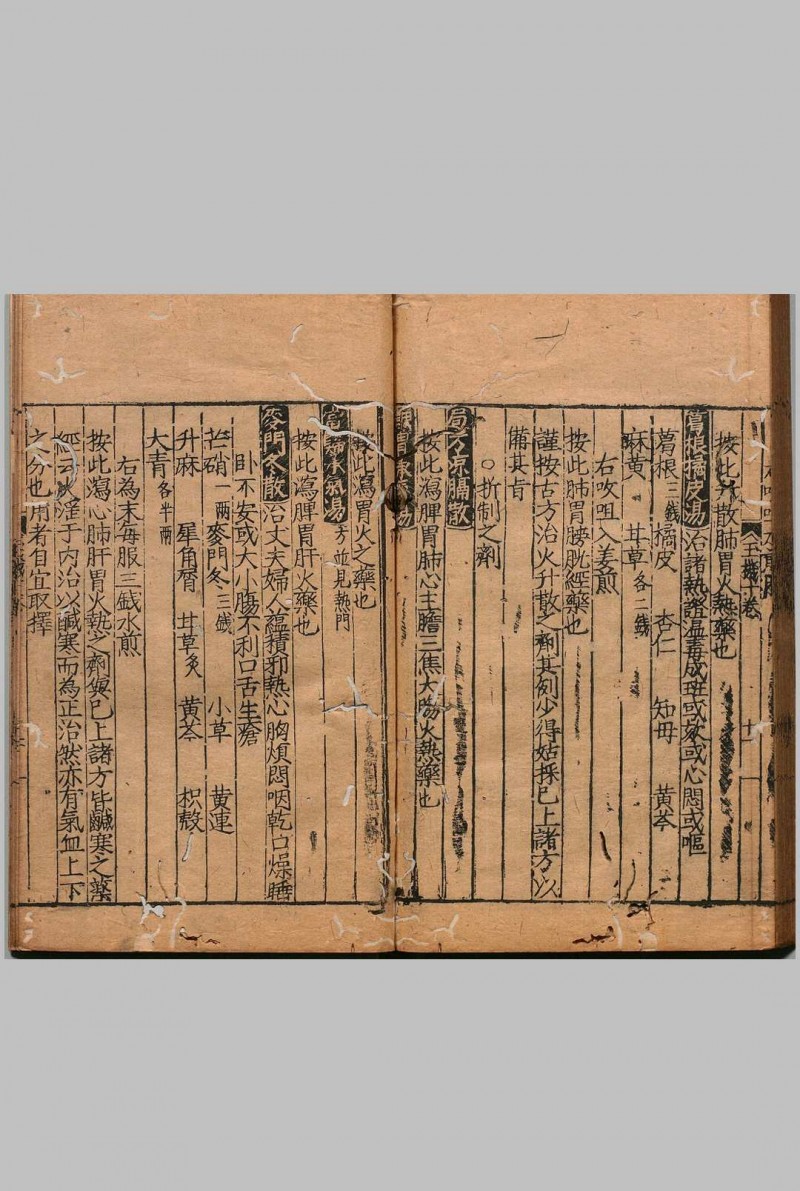 按此升散肺胃火熱藥也
葛根橘皮湯治諸熱證溫毒成班或欬或心悶或嘔
葛根三錢 橘皮 杏仁 知母 黃芩
麻黃 甘草各二錢
右㕮咀入姜煎
按此肺胃膀胱經藥也
謹按古方治火升散之劑甚刻少得姑採已上諸方以
備其旨
○折制之劑
局方涼膈散
按此瀉脾胃肺心主膽三焦太陽火熱藥也
胃承氣湯
按此瀉胃火之藥也
承氣湯方並見熱門
按此瀉脾胃肝火藥也
麥門冬散治丈夫婦人蘊積邪熱心胸煩悶咽乾口燥睡
臥不安或大小腸不利口舌生瘡
芒硝一兩 麥門冬三錢 小草 黃連
升麻 犀角屑 甘草炙 黃芩 枳殼
大青各半兩
右為末每服三錢水煎
按此瀉心肺肝胃火熱之劑與已上諸方皆鹹寒之藥
經云火淫于內治以鹹寒而為正治然亦有氣血上下
之分也用者自宜取擇